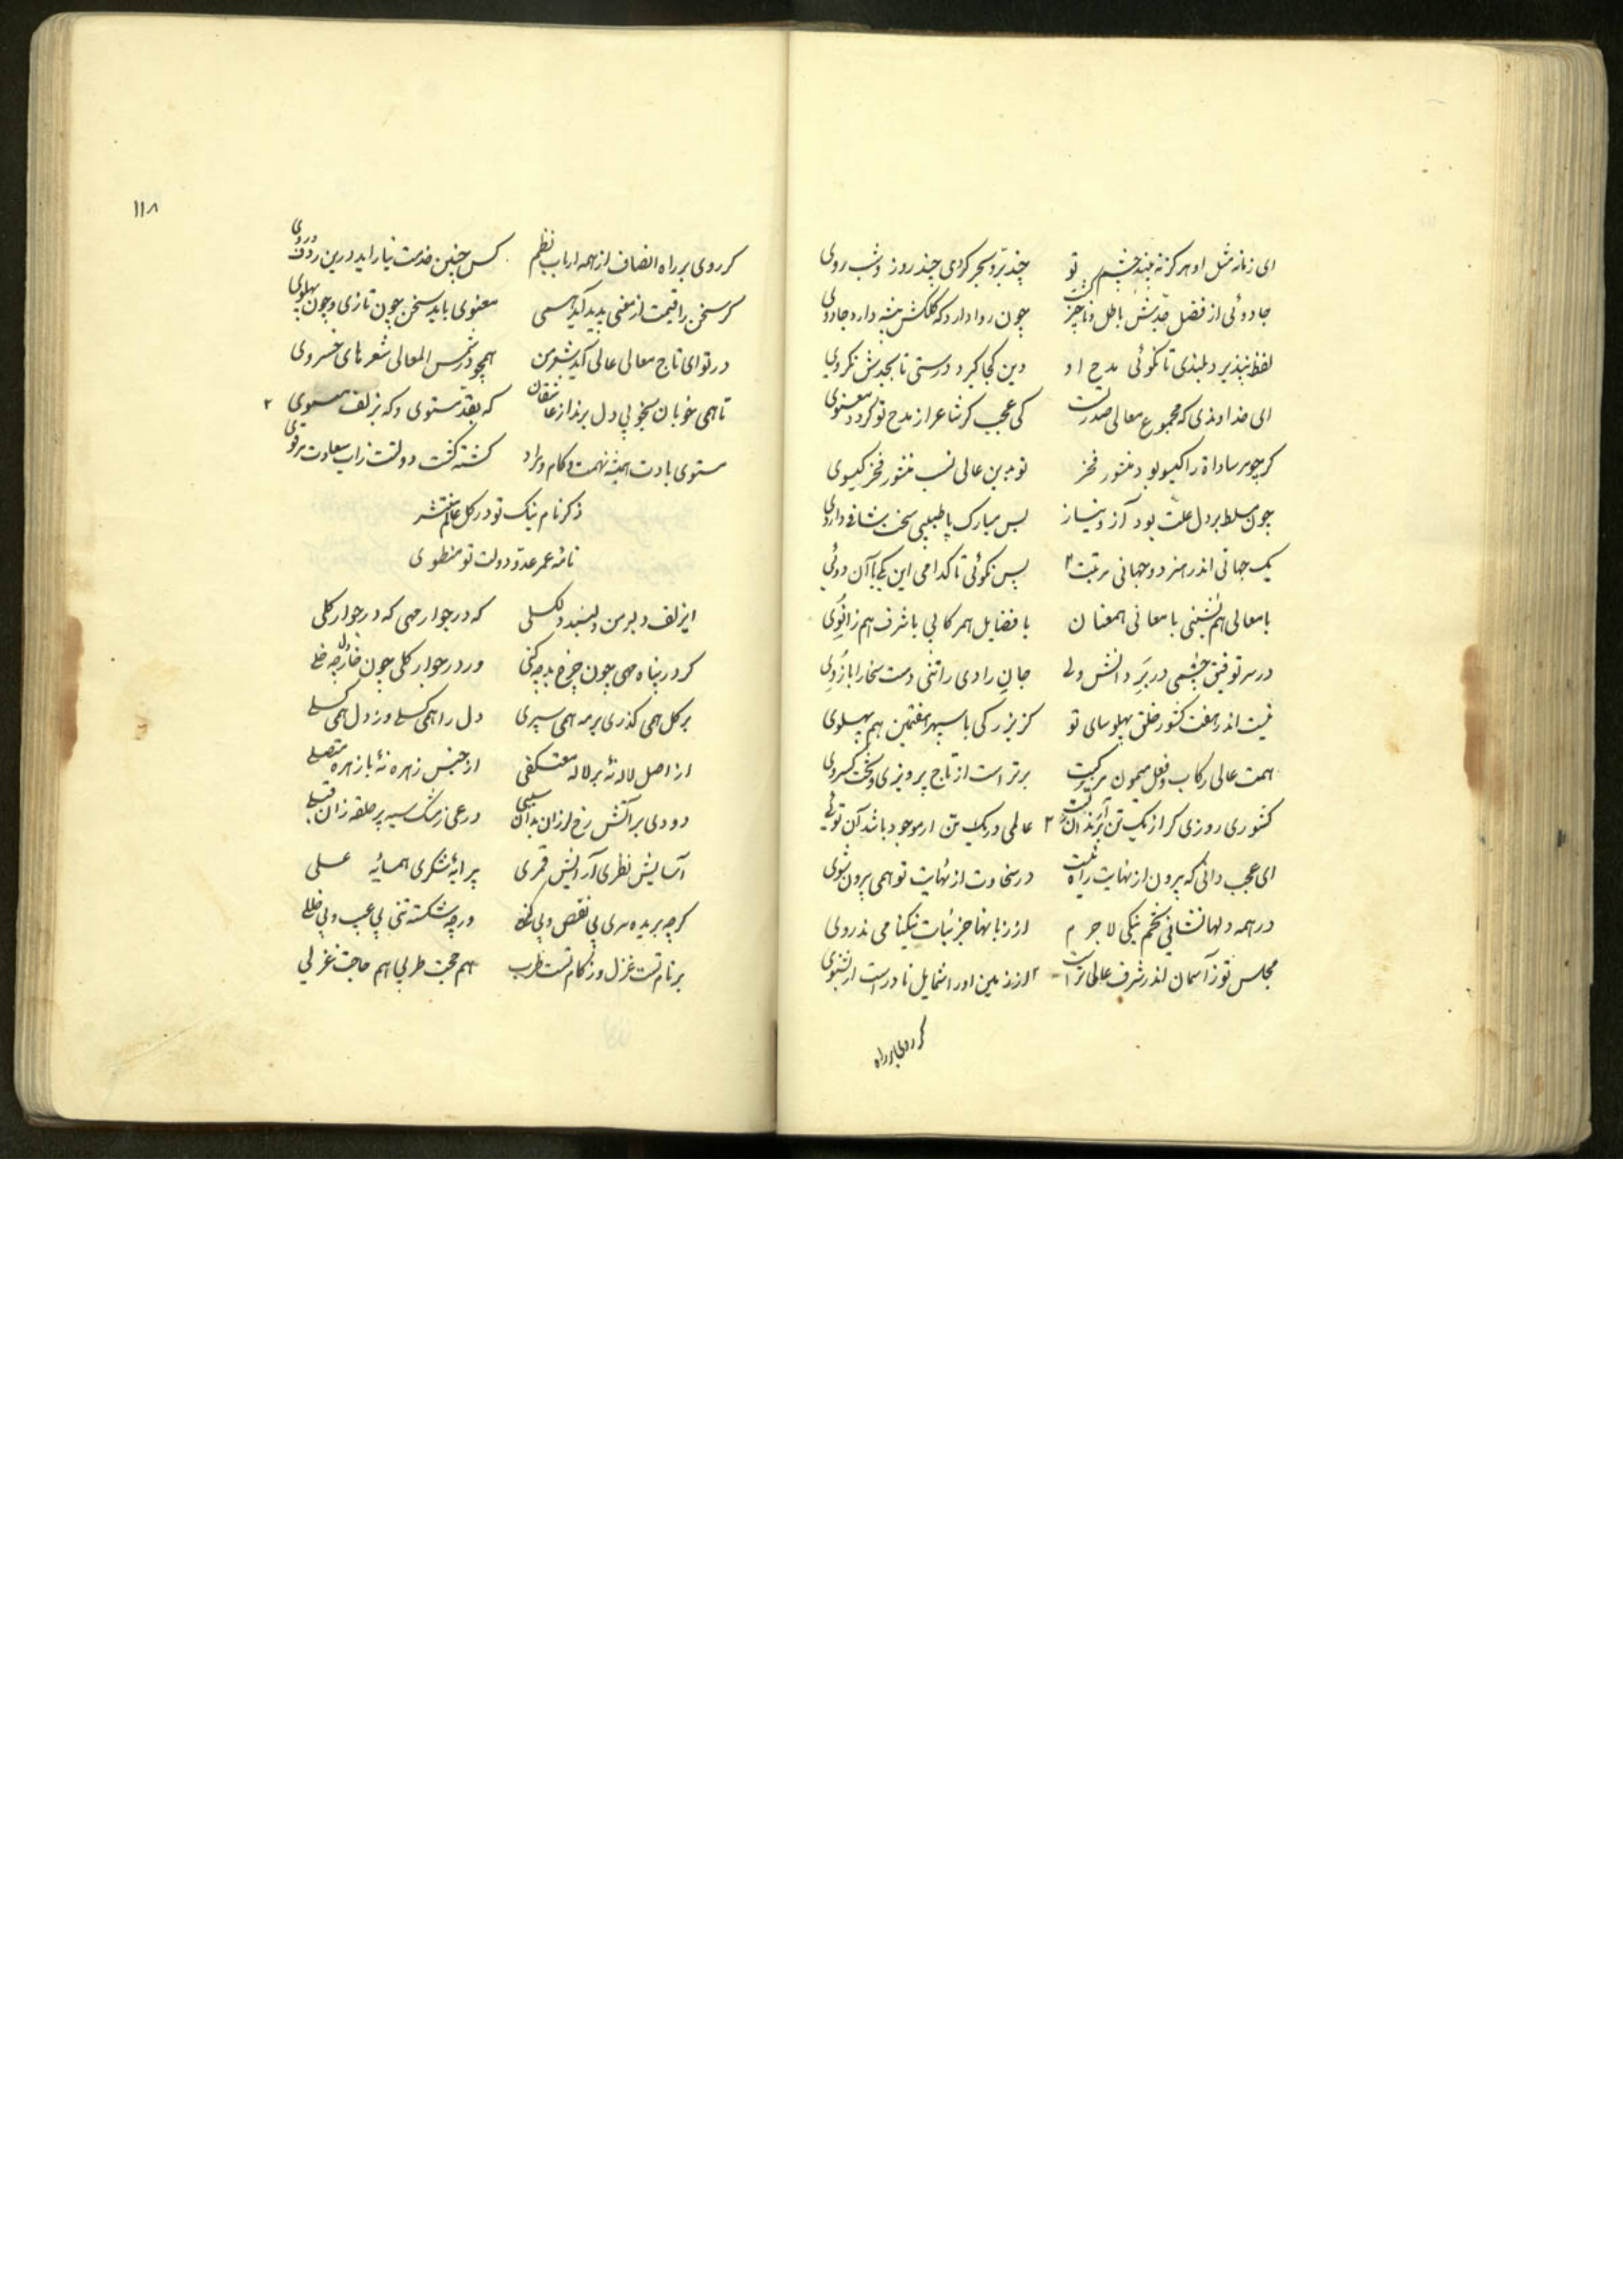 ای زمانه مثل او هرگز نه بیند چشم تو چند بر و بحر کردی چند روز و شب روی
جادوئی از فضل خدیش باطل و ناچیز گشت چون روا دارد که کلکش پیشه دارد جادوی
لفظ نپذیرد بلندی تا نکوئی مدح او دین کجا گیرد درستی تا بجدش نگروی
ای خداوندی که مجموع معالی صدر تست کی عجب گر شاعر از مدح تو گردد معنوی
گر چو مر سادات را گیسو بود منشور فخر تو بدین عالی نسب منشور فخر گیسوی
چون مسلط بر دل علت بود آز و نیاز بس مبارک پا طبیبی سخت شافی داروی
یک جهانی اندر هنر دو جهانی مرتبت پس نکوئی تا کدامی این یکی یا آن دوئی
با معالی هم نشینی با معانی همعنان با فضایل همرکابی با شرف هم زانوی
در سر توفیق چشمی در بر دانش دلی جان رادی را تنی دست سخا را بازوی
نیست اندر هفت کشور خلق پهلوسای تو کز بزرگی با سپهر هفتمین هم پهلوی
همت عالی رکاب و فعل میمون مرکبت برتر است از تاج پرویزی و تخت کسروی
کشوری روزی گر از یک تن عالمی در یک تن ار موجود باشد آن توئی
ای عجب دانی که بیرون از نهایت راه نیست در سخاوت از نهایت تو همی بیرون شوی
در همه دلها نشانی تخم نیکی لاجرم از زبانها جز نبات نیکنامی ندروی
مجلس تو ز آسمان اندر شرف عالی تر است
گر روی بر راه
۱۱۸
گر روی بر راه انصاف از همه ارباب نظم کس چنین خدمت نیاراید درین ردف و روی
گر سخن را قیمت از معنی پدید آید همی معنوی باید سخن چون تازی و چون پهلوی
در تو ای تاج معالی عالی آید شعر من همچو در شمس المعالی شعرهای خسروی
تا همی خوبان بخوبی دل برند از عاشقان گه بقد مستوی و گه بزلف ملتوی
مستوی بادت همیشه نهمت و کام و مراد کشته کشت دولتت ز آب سعادت مرتوی
ذکر نام نیک تو در کل عالم منتشر
نامه عمر عدو دولت تو منطوی
ای زلف دلبر من دلبند و دلگسلی گه در جوار مهی گه در جوار گلی
گر در پناه مهی چون چرخ بد چه کنی ور در جوار گلی چون خار از چه خلی
بر گل همی گذری بر مه همی سپری دل را همی گسلی وز دل همی گسلی
از اصل لاله نه بر لاله معتکفی از جنس زهره نه با زهره متصلی
دودی بر آتش رخ لرزان بدان سببی درعی ز مشک سیه پر حلقه زان قبلی
آسایش نظری آرایش قمری پیرایه شکری همسایه عسلی
گرچه بریده سری بی نقص و بی گنهی ورچه شکسته تنی بی عیب و بی خللی
بر نام تست غزل وز کام تست طرب هم حجت طربی هم حاجت غزلی